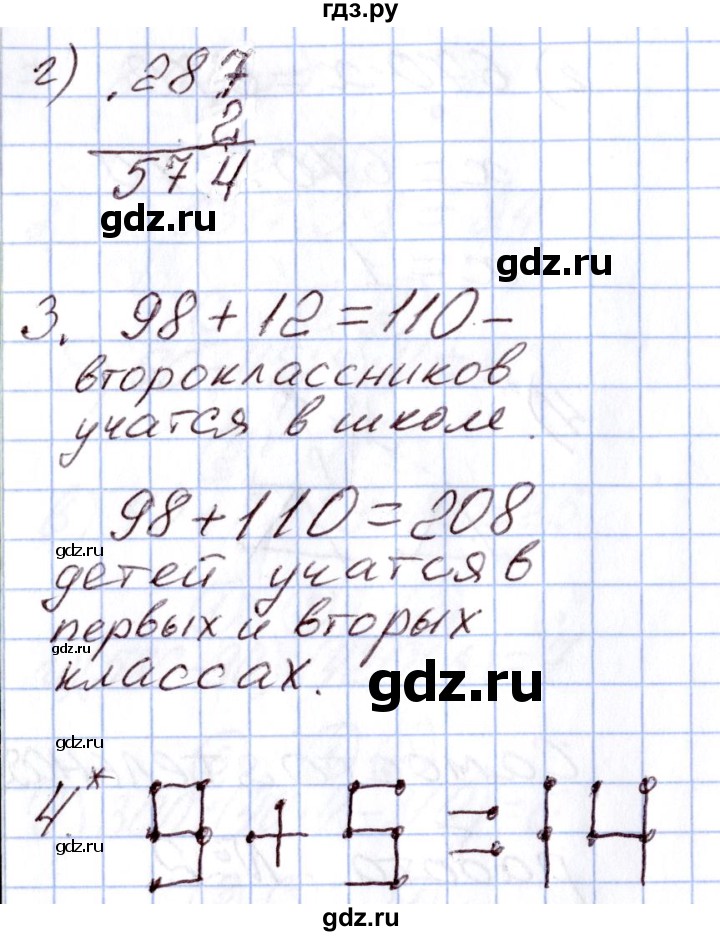 гдз.ру
г) .287
2
574
gdz.ru
gdz.ru
3. 98 + 12 = 110 -
второклассников
учатся в школе.
98 + 110 = 208
gdz.ru
детей учатся в
первых и вторых
gdz.ru
классах.
gdz.ru
gdz.ru
4.* 9 + 5 = 14
gdz.ru
gdz.ru